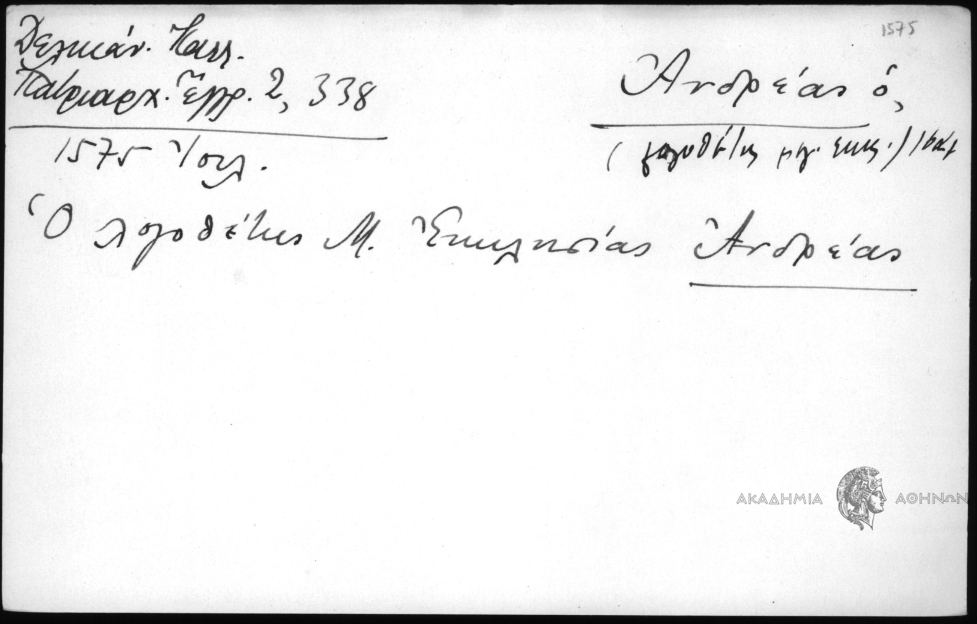 1575
Δελικάν. Καλλ.
Πατριαρχ. Ἔγγρ. 2, 338
1575 Ἰουλ.
Ἀνδρέας ὁ,
(λογοθέτης μεγ. εκκ.)
Ὁ λογοθέτης Μ. Ἐκκλησίας Ἀνδρέας
ΑΚΑΔΗΜΙΑ ΑΘΗΝΩΝ